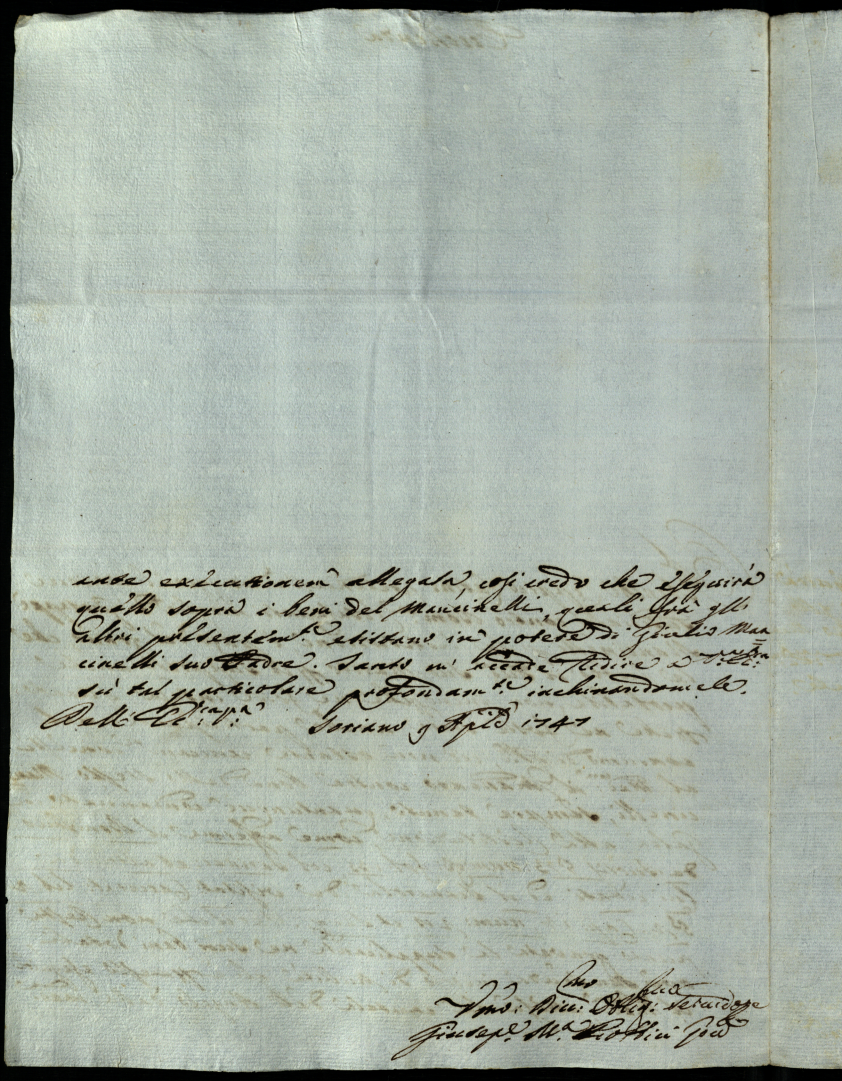 ante executionem allegata così credo che eseguirà
quello sopra i beni del Mancinelli, quali frà gli
altri presentem.te esistano in potere di Giulio Man=
cinelli suo Padre. Tanto m' accade ridire a
sù tal particolare profondam.te inchinandomele.
Soriano 9 Ap.le 1747
Umo: Div: Oblig: Servidore
Giusepe M.a